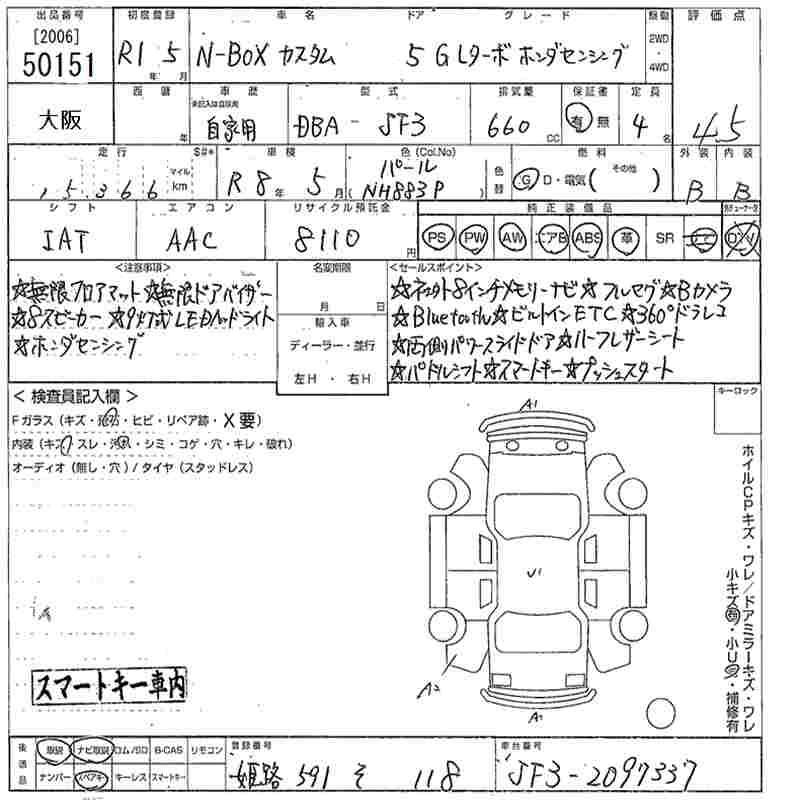 出品番号 初度登録 車名 ドア グレード 駆動 評価点
[2006]
50151 R1 年 5 月 N-BOX カスタム 5 GLターボ ホンダセンシング 2WD・4WD
大阪 西暦 年 車歴 未記入は自家用 型式 排気量 保証書 定員
自家用 DBA - JF3 660 CC 有 無 4 名 4.5
走行 S#* 車検 色(Col.No) 燃料 外装 内装
15,366 マイル km R8 年 5 月 パール ( NH883P ) 色替 G・D・電気( その他 ) B B
シフト エアコン リサイクル預託金 純正装備品
IAT AAC 8110 円 PS PW AW エアB ABS 革 SR
<注意事項>
☆無限フロアマット☆無限ドアバイザー
☆8スピーカー☆9灯式LEDヘッドライト
☆ホンダセンシング
名変期限
月 日
輸入車
ディーラー・並行
左H・右H
<セールスポイント>
☆ネオト8インチメモリーナビ☆フルセグ☆Bカメラ
☆Bluetooth☆ビルトインETC☆360°ドラレコ
☆両側パワースライドドア☆ハーフレザーシート
☆パドルシフト☆スマートキー☆プッシュスタート
キーロック
< 検査員記入欄 >
Fガラス(キズ・飛石・ヒビ・リペア跡・X要)
内装(キズ・スレ・汚れ・シミ・コゲ・穴・キレ・破れ)
オーディオ(無し・穴)/タイヤ(スタッドレス)
A1
U1
A2
A1
ホイルCPキズ・ワレ/ドアミラーキズ・ワレ
小キズ有・小U有・補修有
スマートキー車内
後送品 取説 ナビ取説 ロム/SD B-CAS リモコン
ナンバー スペアキー キーレス スマートキー
登録番号 姫路 591 そ 118
車台番号 JF3-2097337